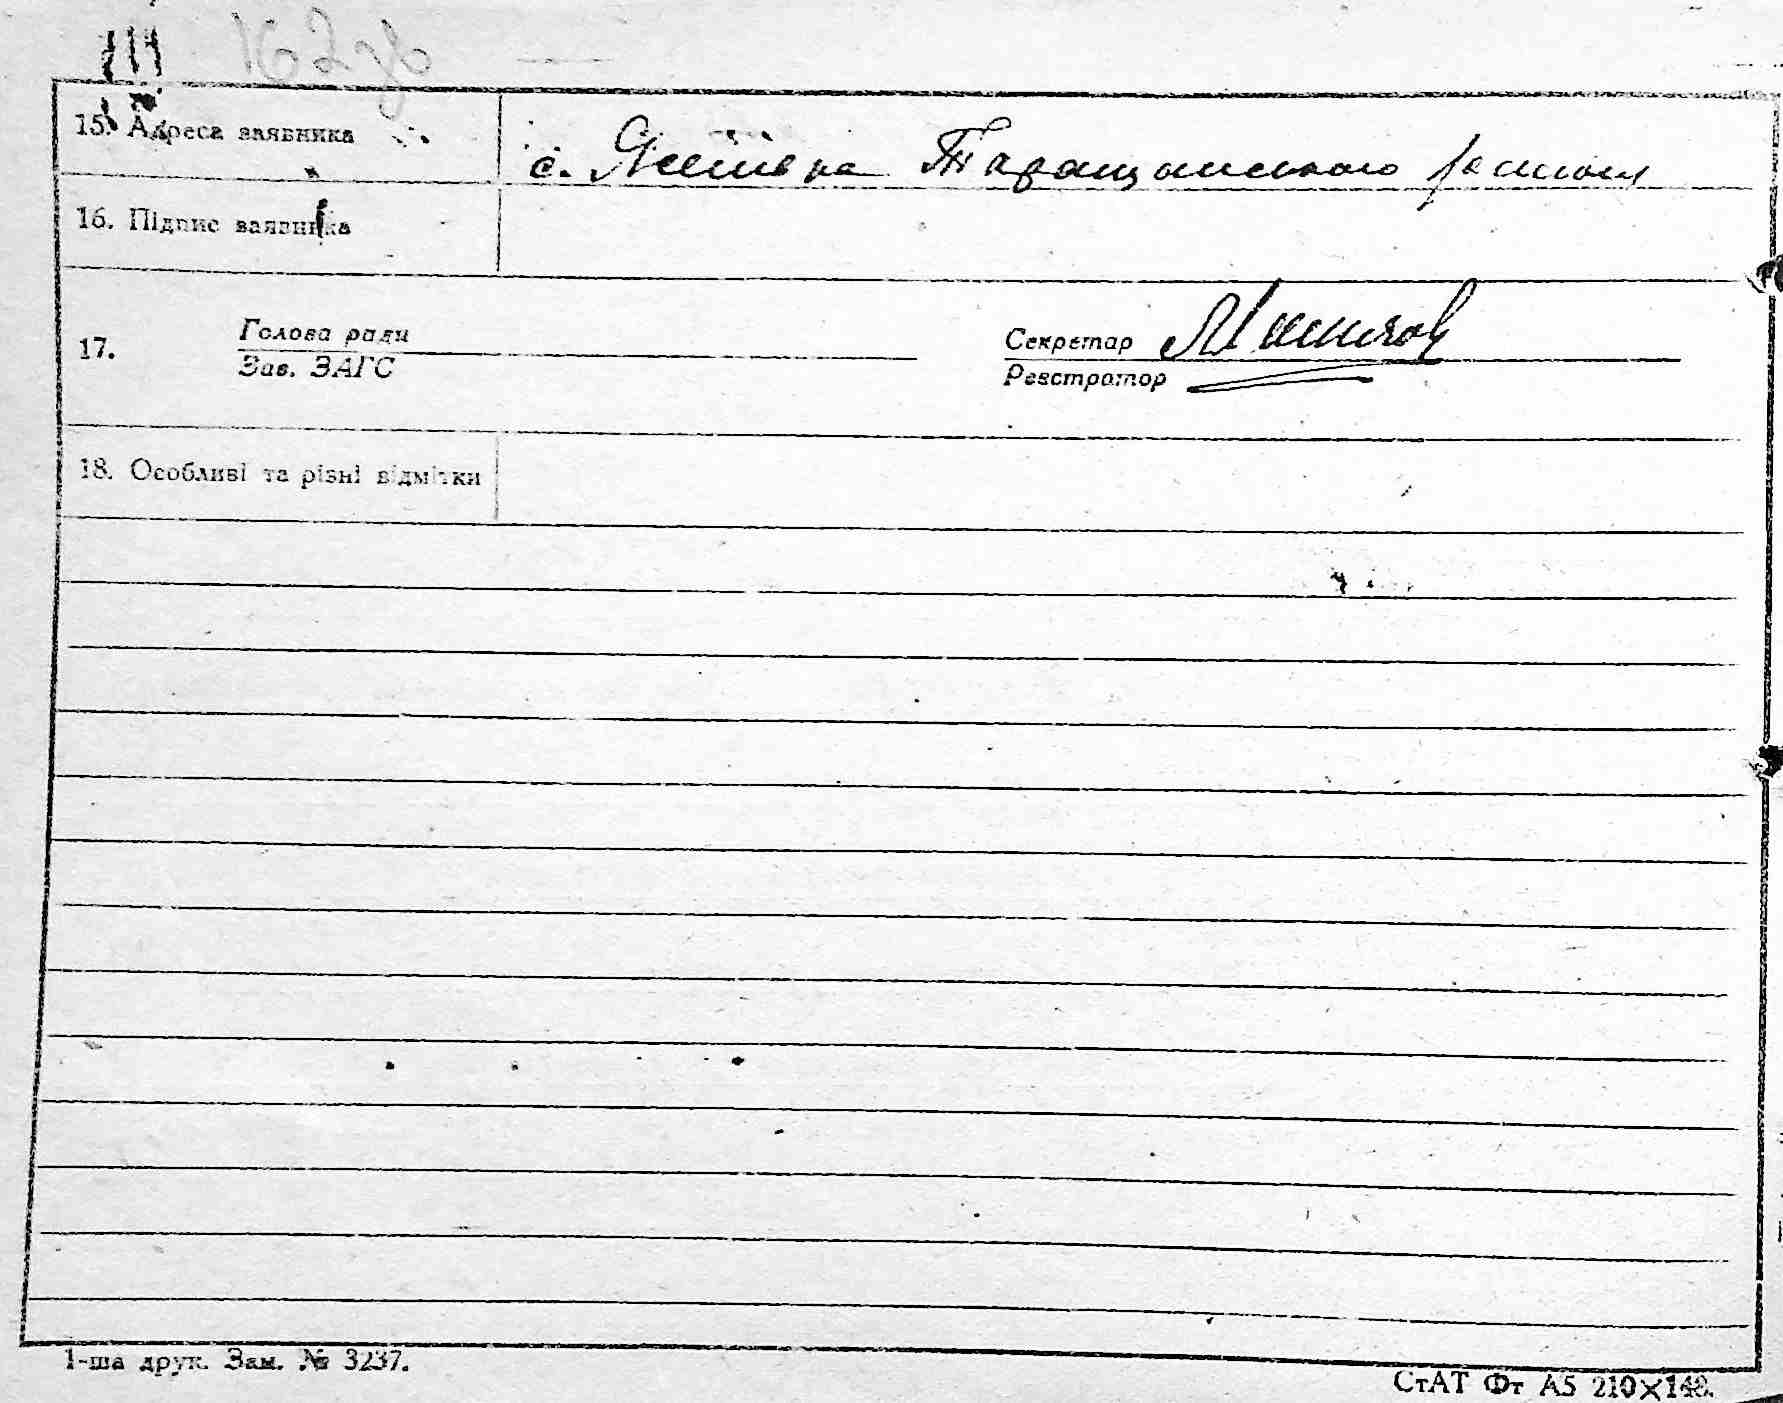 15. Адреса заявника
с. Таращанського району
16. Підпис заявника
17. Голова ради
Зав. ЗАГС
Секретар
Реєстратор
18. Особливі та різні відмітки
1-ша друк. Зам. № 3237.
СтАТ Фт А5 210×148.